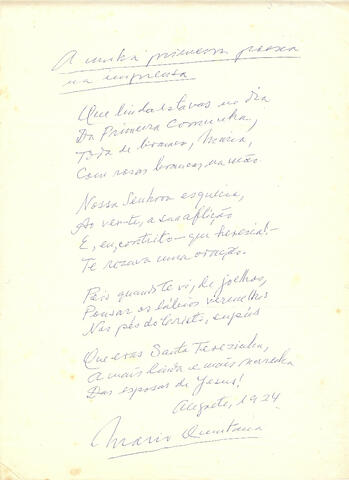 A minha primeira poesia
na imprensa
Que linda estavas no dia
Da Primeira Comunhão,
Toda de branco, Maria,
Com rosas brancas na mão
Nossa Senhora esquecia,
Ao ver-te, a sua aflição
E, eu, contrito — que heresia! —
Te rezava uma oração.
Pois quando te vi, de joelhos,
Pousar os lábios vermelhos
Nos pés do Cristo, supus
Que eras Santa Teresinha,
A mais linda e mais
Das esposas de Jesus!
Alegrete, 1924.
Mario Quintana